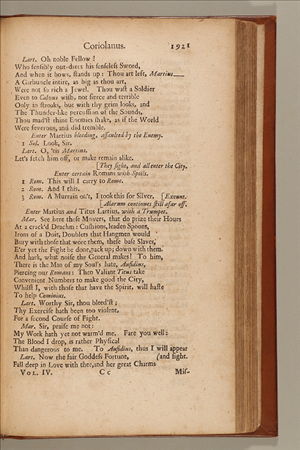 Coriolanus. 1921
Lart. Oh noble Fellow!
Who sensibly out-dares his senseless Sword,
And when it bows, stands up: Thou art left, Martius—
A Carbuncle intire, as big as thou art,
Were not so rich a Jewel. Thou wast a Soldier
Even to Calvus wish, not fierce and terrible
Only in stroaks, but with thy grim looks, and
The Thunder-like percussion of the Sounds,
Thou mad'st thine Enemies shake, as if the World
Were feverous, and did tremble.
Enter Martius bleeding, assaulted by the Enemy.
1 Sol. Look, Sir.
Lart. O, 'tis Martius.
Let's fetch him off, or make remain alike.
[They fight, and all enter the City.
Enter certain Romans with Spoils.
1 Rom. This will I carry to Rome.
2 Rom. And I this.
3 Rom. A Murrain on't, I took this for Silver. [Exeunt.
[Alarum continues still afar off.
Enter Martius and Titus Lartius, with a Trumpet.
Mar. See here these Movers, that do prize their Hours
At a crack'd Drachm: Cushions, leaden Spoons,
Irons of a Doit, Doublets that Hangmen would
Bury with those that wore them, these base Slaves,
E'er yet the Fight be done, pack up; down with them.
And hark, what noise the General makes! To him,
There is the Man of my Soul's hate, Aufidius,
Piercing our Romans: Then Valiant Titus take
Convenient Numbers to make good the City,
Whilst I, with those that have the Spirit, will haste
To help Cominius.
Lart. Worthy Sir, thou bleed'st;
Thy Exercise hath been too violent,
For a second Course of Fight.
Mar. Sir, praise me not:
My Work hath yet not warm'd me. Fare you well:
The Blood I drop, is rather Physical
Than dangerous to me. To Aufidius, thus I will appear
Lart. Now the fair Goddess Fortune, (and fight.
Fall deep in Love with thee, and her great Charms
VOL. IV. C c Mis-